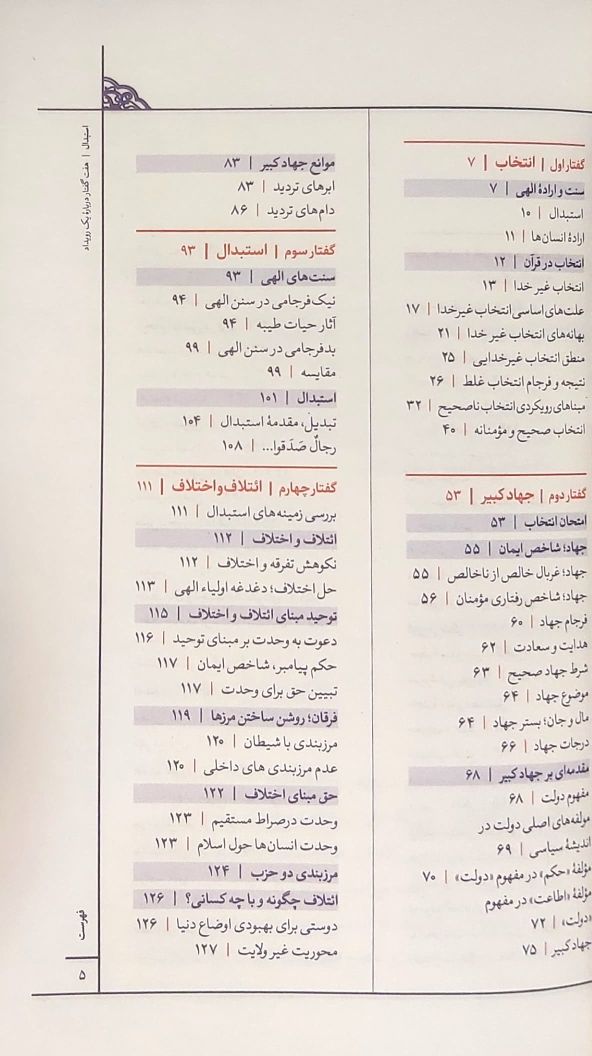 گفتار اول | انتخاب | ۷
سنت و ارادهٔ الهی | ۷
استبدال | ۱۰
ارادهٔ انسان‌ها | ۱۱
انتخاب در قرآن | ۱۲
انتخاب غیر خدا | ۱۳
علت‌های اساسی انتخاب غیرخدا | ۱۷
بهانه‌های انتخاب غیر خدا | ۲۱
منطق انتخاب غیرخدایی | ۲۵
نتیجه و فرجام انتخاب غلط | ۲۶
مبناهای رویکردی انتخاب ناصحیح | ۳۲
انتخاب صحیح و مؤمنانه | ۴۰
گفتار دوم | جهاد کبیر | ۵۳
امتحان انتخاب | ۵۳
جهاد؛ شاخص ایمان | ۵۵
جهاد؛ غربال خالص از ناخالص | ۵۵
جهاد؛ شاخص رفتاری مؤمنان | ۵۶
فرجام جهاد | ۶۰
هدایت و سعادت | ۶۲
شرط جهاد صحیح | ۶۳
موضوع جهاد | ۶۴
مال و جان؛ بستر جهاد | ۶۴
درجات جهاد | ۶۶
مقدمه‌ای بر جهاد کبیر | ۶۸
مفهوم دولت | ۶۸
مولفه‌های اصلی دولت در
اندیشهٔ سیاسی | ۶۹
مؤلفهٔ «حکم» در مفهوم «دولت» | ۷۰
مؤلفهٔ «اطاعت» در مفهوم
«دولت» | ۷۲
جهاد کبیر | ۷۵
موانع جهاد کبیر | ۸۳
ابرهای تردید | ۸۳
دام‌های تردید | ۸۶
گفتار سوم | استبدال | ۹۳
سنت‌های الهی | ۹۳
نیک‌فرجامی در سنن الهی | ۹۴
آثار حیات طیبه | ۹۴
بدفرجامی در سنن الهی | ۹۹
مقایسه | ۹۹
استبدال | ۱۰۱
تبدیل، مقدمهٔ استبدال | ۱۰۴
رجالٌ صَدَقوا... | ۱۰۸
گفتار چهارم | ائتلاف و اختلاف | ۱۱۱
بررسی زمینه‌های استبدال | ۱۱۱
ائتلاف و اختلاف | ۱۱۲
نکوهش تفرقه و اختلاف | ۱۱۲
حل اختلاف؛ دغدغه اولیاء الهی | ۱۱۳
توحید مبنای ائتلاف و اختلاف | ۱۱۵
دعوت به وحدت بر مبنای توحید | ۱۱۶
حکم پیامبر، شاخص ایمان | ۱۱۷
تبیین حق برای وحدت | ۱۱۷
فرقان؛ روشن ساختن مرزها | ۱۱۹
مرزبندی با شیطان | ۱۲۰
عدم مرزبندی های داخلی | ۱۲۰
حق مبنای اختلاف | ۱۲۲
وحدت درصراط مستقیم | ۱۲۳
وحدت انسان‌ها حول اسلام | ۱۲۳
مرزبندی دو حزب | ۱۲۴
ائتلاف چگونه و با چه کسانی؟ | ۱۲۶
دوستی برای بهبودی اوضاع دنیا | ۱۲۶
محوریت غیر ولایت | ۱۲۷
استبدال | هفت گفتار دربارهٔ یک رویداد
فهرست
۵